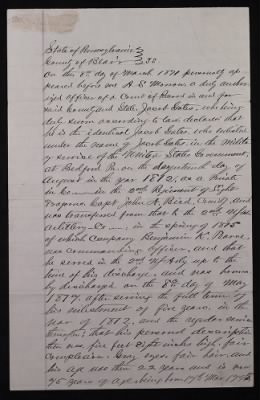 State of Pennsylvania
County of Blair } SS.
On this 8th day of March 1871 personally ap
peared before me A. S. Morrow a duly author
ized officer of a Court of Record in and for
said County and State, Jacob Oates, who being
duly sworn according to law, declares that
he is the identical Jacob Oates, who enlisted
under the name of Jacob Oates, in the Milita
ry service of the United States Government,
at Bedford Pa. on the day of
August in the year 1812, as a Private
in Co in the 2nd Regiment of Light
Dragoons Capt John A. Reed, Comdg and
was transferred from that to the 2nd U.S.
Artillery Co , in the spring of 1815
of which Company Benjamin K. Pierce,
was commanding officer, and that
he served in the 2nd up to the
time of his discharge, and was honora
bly discharged on the 8th day of May
1817, after serving the full term of
his enlistment of five years, in the
war of 1812, and the regular service
thereafter; that his personal description
then was five feet eight inches high, fair
complexion, Grey eyes, fair hair, and
his age was then 22 years and is now
75 years of age, being born 17th Mar, 1795